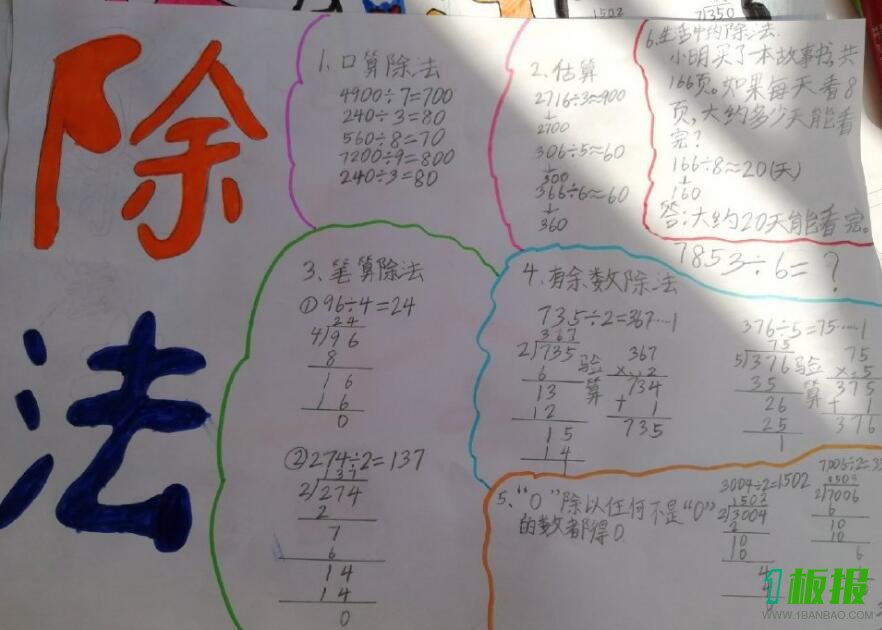 除
法
1502
7 350
1、口算除法
4900÷7=700
240÷3=80
560÷8=70
7200÷9=800
240÷3=80
2、估算
2716÷3≈900
2700
306÷5≈60
300
366÷6≈60
360
6、生活中的除法
小明买了一本故事书,共
166页。如果每天看8
页,大约多少天能看
完?
166÷8≈20(天)
160
答:大约20天能看完。
3、笔算除法
①96÷4=24
24
4 96
8
16
16
0
②274÷2=137
137
2 274
2
7
6
14
14
0
7853÷6=?
4、有余数除法
735÷2=367……1
367
2 735
6
13
12
15
14
1
验算
367
×2
734
+ 1
735
376÷5=75……1
75
5 376
35
26
25
1
验算
75
×5
375
+ 1
376
5、“0”除以任何不是“0”
的数都得0
3004÷2=1502
1502
2 3004
2
10
10
4
7006÷2=35
3503
2 7006
6
10
10
6
1板报
WWW.1BANBAO.COM